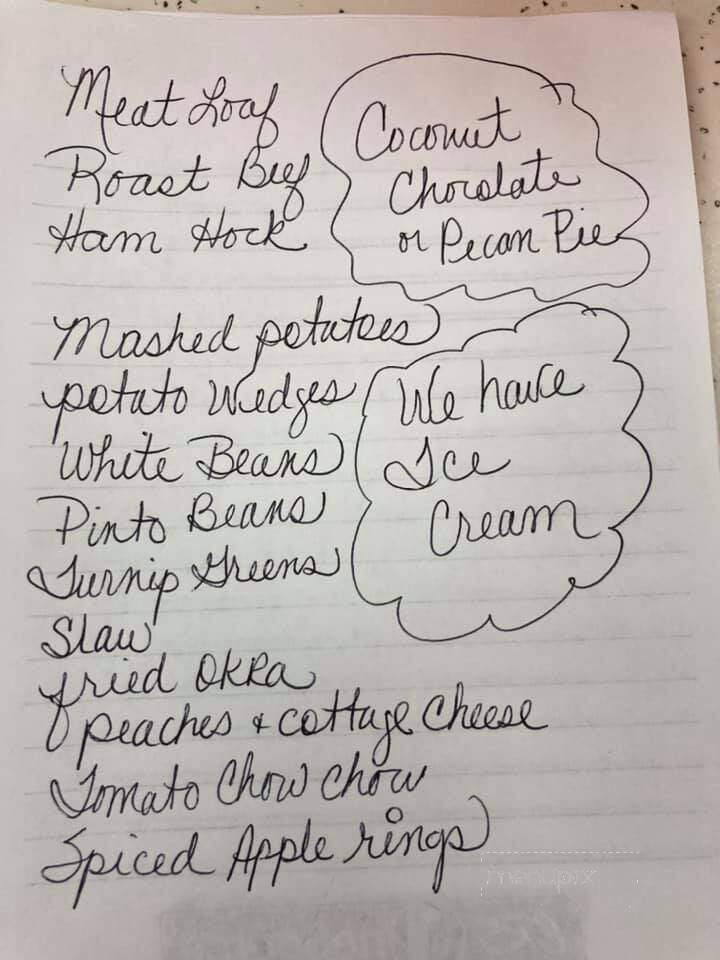 Meat Loaf
Roast Beef
Ham Hock
Coconut
Chocolate
or Pecan Pie
Mashed potatoes
potato Wedges
White Beans
Pinto Beans
Turnip Greens
Slaw
fried OKRa
peaches + cottage cheese
Tomato Chow Chow
Spiced Apple rings
We have
Ice
Cream
menupix